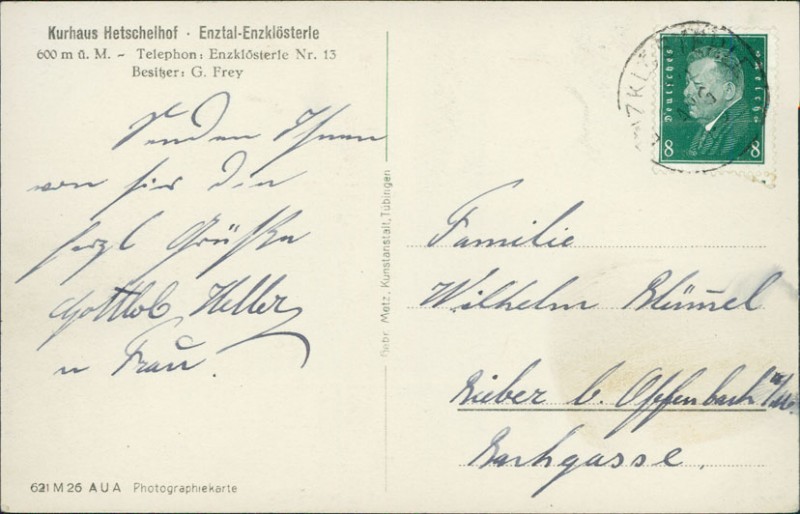 Kurhaus Hetschelhof · Enztal-Enzklösterle
600 m ü. M. – Telephon: Enzklösterle Nr. 13
Besitzer: G. Frey
Senden Ihnen
von hier die
herzl Grüße
Gottlob Heller
u Frau.
621 M 26 A U A Photographiekarte
Gebr. Metz, Kunstanstalt, Tübingen
Deutsches Reich
8 8
Familie
Wilhelm Blümel
Bieber b. Offenbach a/M.
Bachgasse.